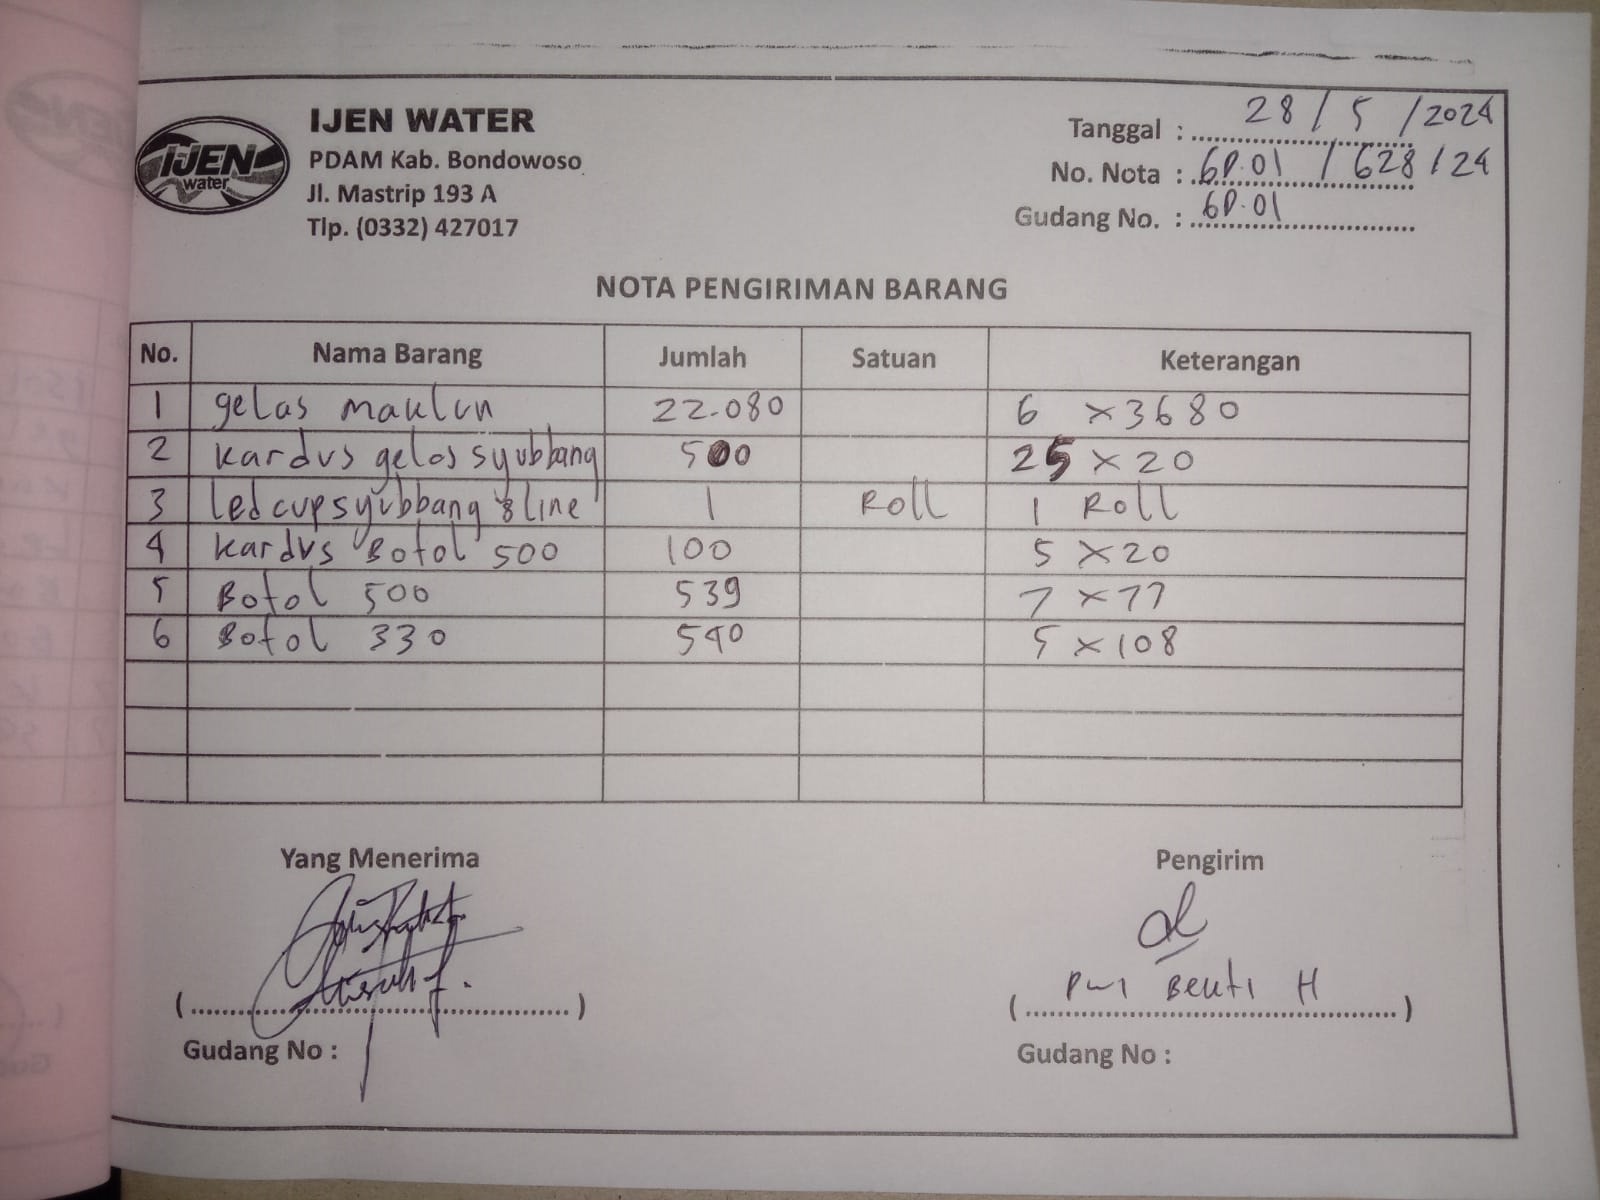 IJEN
water
IJEN WATER
PDAM Kab. Bondowoso
Jl. Mastrip 193 A
Tlp. (0332) 427017
Tanggal : 28 / 5 / 2024
No. Nota : GD.01 / 628 / 24
Gudang No. : GD.01
NOTA PENGIRIMAN BARANG
No. Nama Barang Jumlah Satuan Keterangan
1 gelas maklun 22.080 6 x 3680
2 kardus gelas syubbang 500 25 x 20
3 led cup syubbang 8 line 1 Roll 1 Roll
4 kardus Botol 500 100 5 x 20
5 Botol 500 539 7 x 77
6 Botol 330 540 5 x 108
Yang Menerima Pengirim
( ) ( H )
Gudang No : Gudang No :